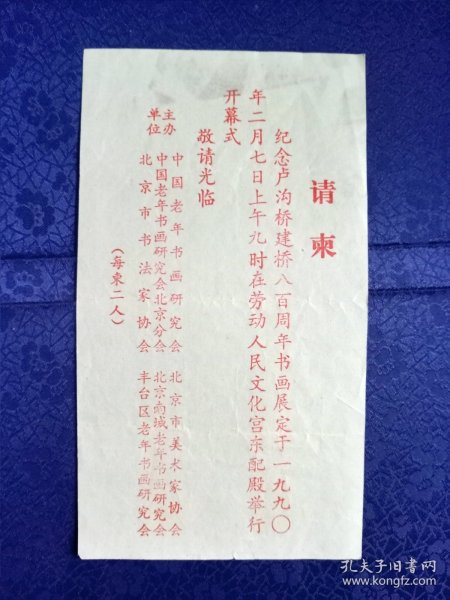 请柬
纪念卢沟桥建桥八百周年书画展定于一九九〇
年二月七日上午九时在劳动人民文化宫东配殿举行
开幕式
敬请光临
主办
单位
中国老年书画研究会 北京市美术家协会
中国老年书画研究会北京分会 北京南城老年书画研究会
北京市书法家协会 丰台区老年书画研究会
（每柬二人）
孔夫子旧书网
www.kongfz.com